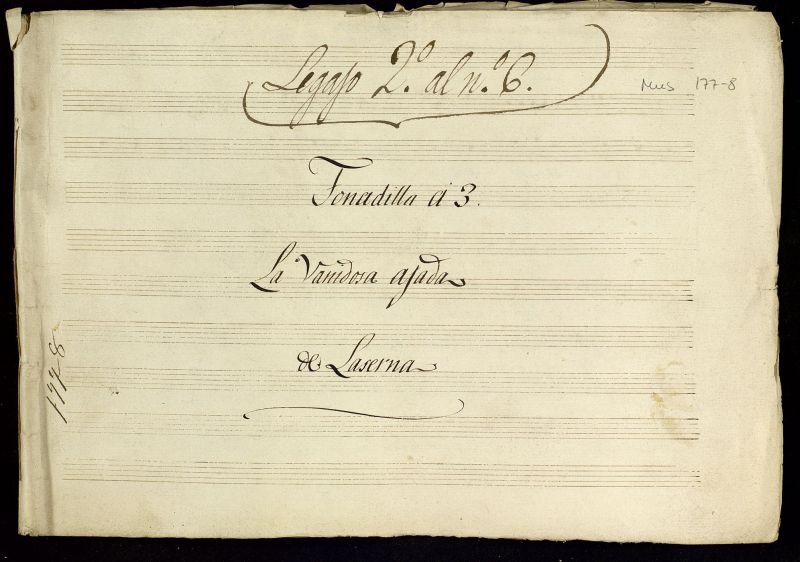 Legajo 2.º al n.º 6.
Mus 177-8
Tonadilla á 3.
La Vanidosa ajada
de Laserna
177-8